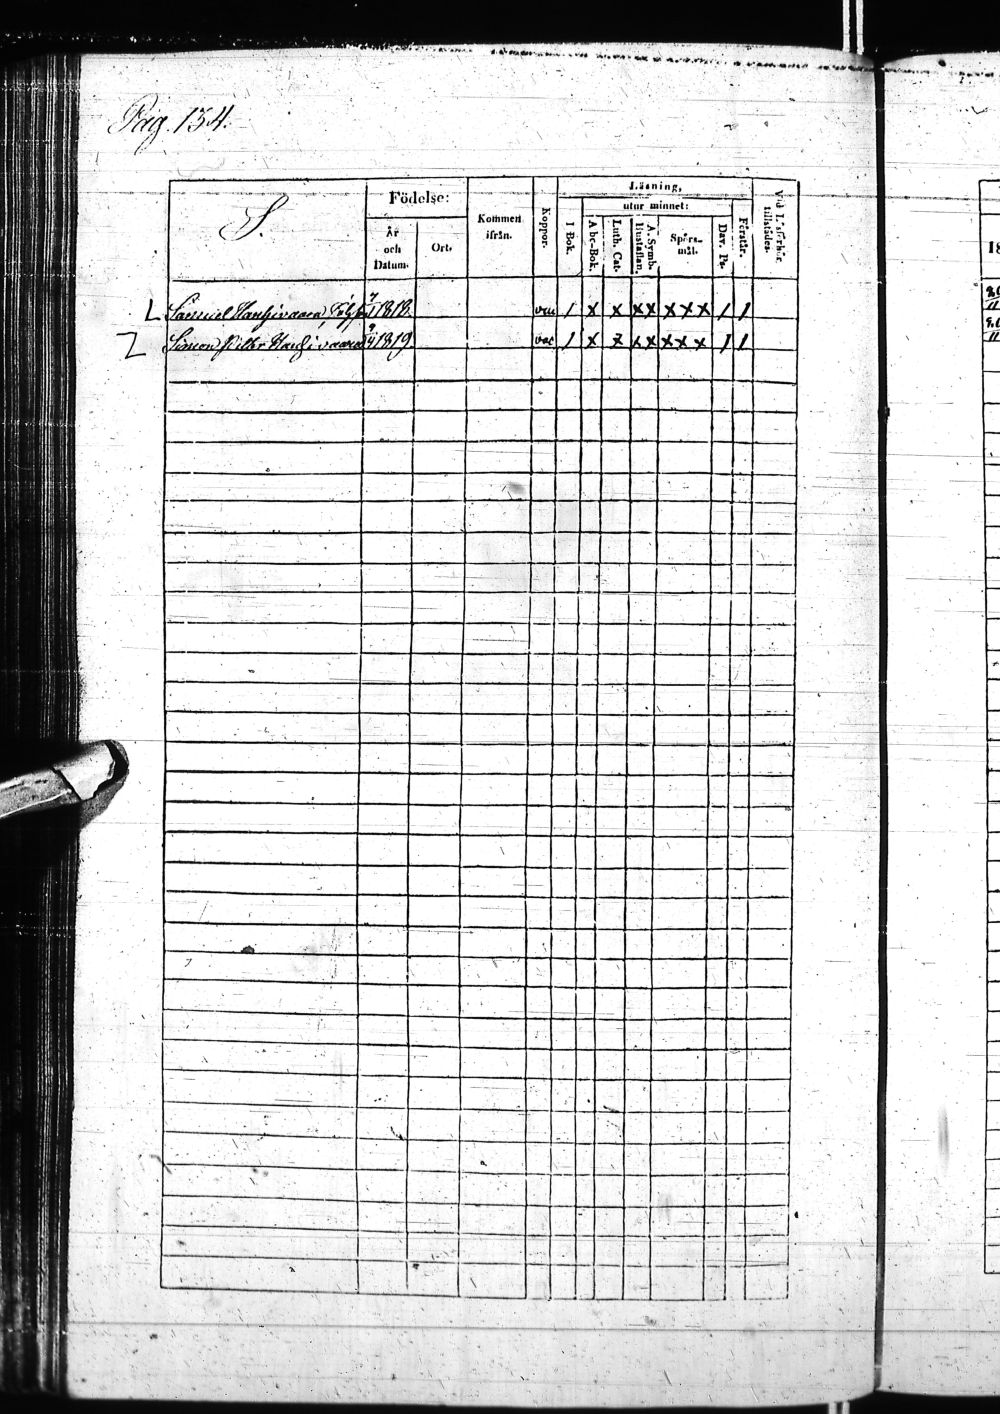 Pag. 134.
S.
Födelse:
År och Datum.
Ort.
Kommen ifrån.
Koppor.
Läsning,
utur minnet:
I Bok.
Abc-Bok.
Luth. Cat.
A. Symb. Hustaflan.
Spörs-mål.
Dav. Ps.
Förstår.
Vid Läsförhör tillstädes.
L Samuel 1818. vac 1 x x xx xxx 1 1
Z Simon Petter 1819. vac 1 x z xx xxx 1 1
18